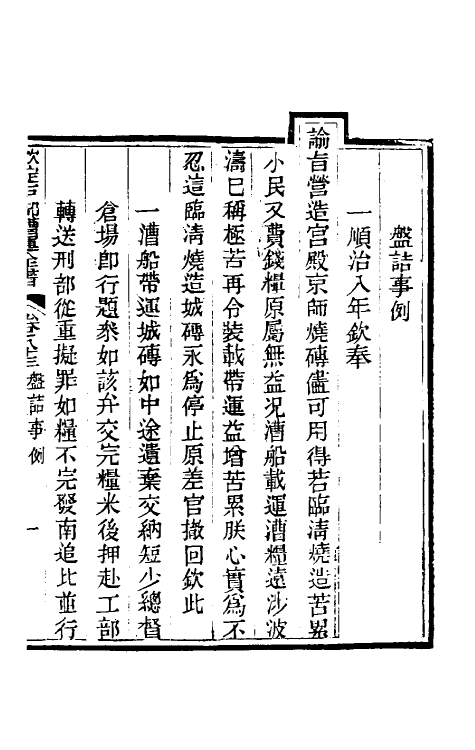 盤詰事例
一順治八年欽奉
諭旨營造宮殿京師燒磚儘可用得若臨清燒造苦累
小民又費錢糧原屬無益况漕船載運漕糧遠涉波
濤已稱極苦再令裝載帶運益增苦累朕心實爲不
忍這臨清燒造城磚永爲停止原差官撤回欽此
一漕船帶運城磚如中途遺棄交納短少總督
倉場卽行題叅如該弁交完糧米後押赴工部
轉送刑部從重擬罪如糧不完發南追比並行
欽定戶部漕運全書 卷 盤詰事例 一